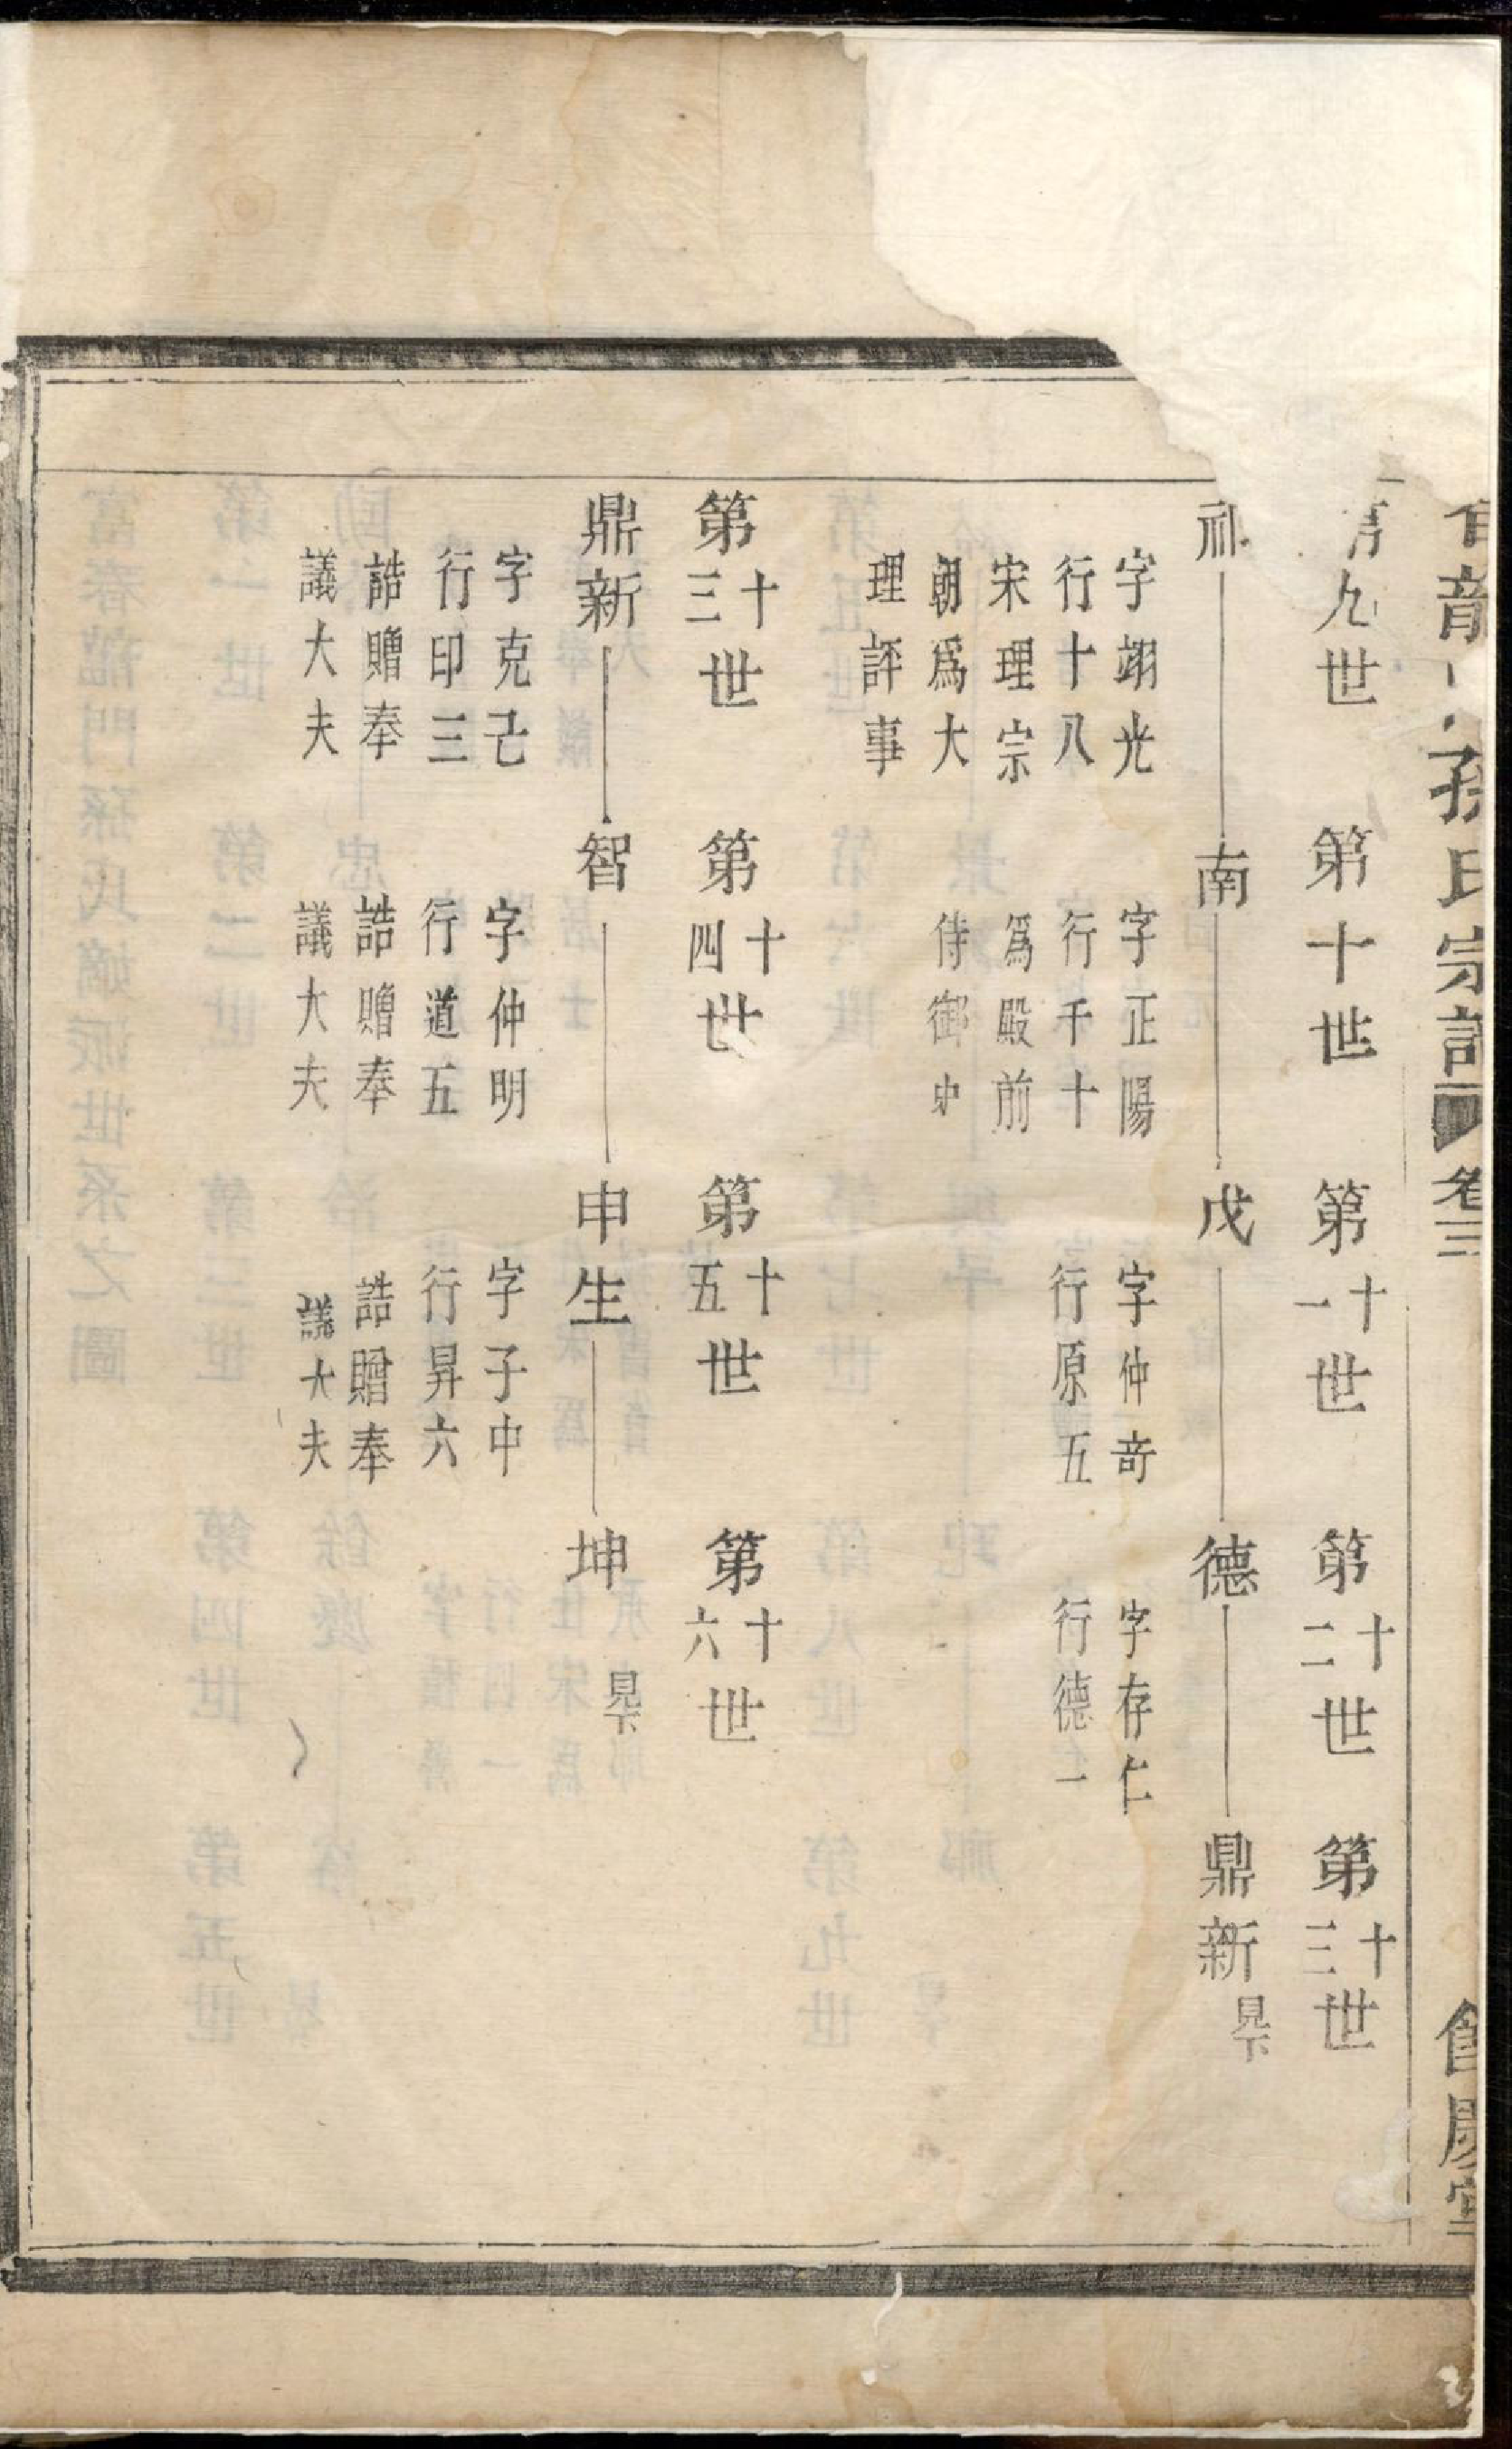 孫氏宗譜 卷三
九世 第十世 第十一世 第十二世 第十三世
南 戊 德 鼎新 見下
字翊光
行十八
宋理宗
朝爲大
理評事
字正陽
行千十
爲殿前
侍御史
字仲奇
行原五
字存仁
行德一
第十三世 第十四世 第十五世 第十六世
鼎新 智 申生 坤 見下
字克己
行印三
誥贈奉
議大夫
字仲明
行道五
誥贈奉
議大夫
字子中
行昇六
誥贈奉
議大夫